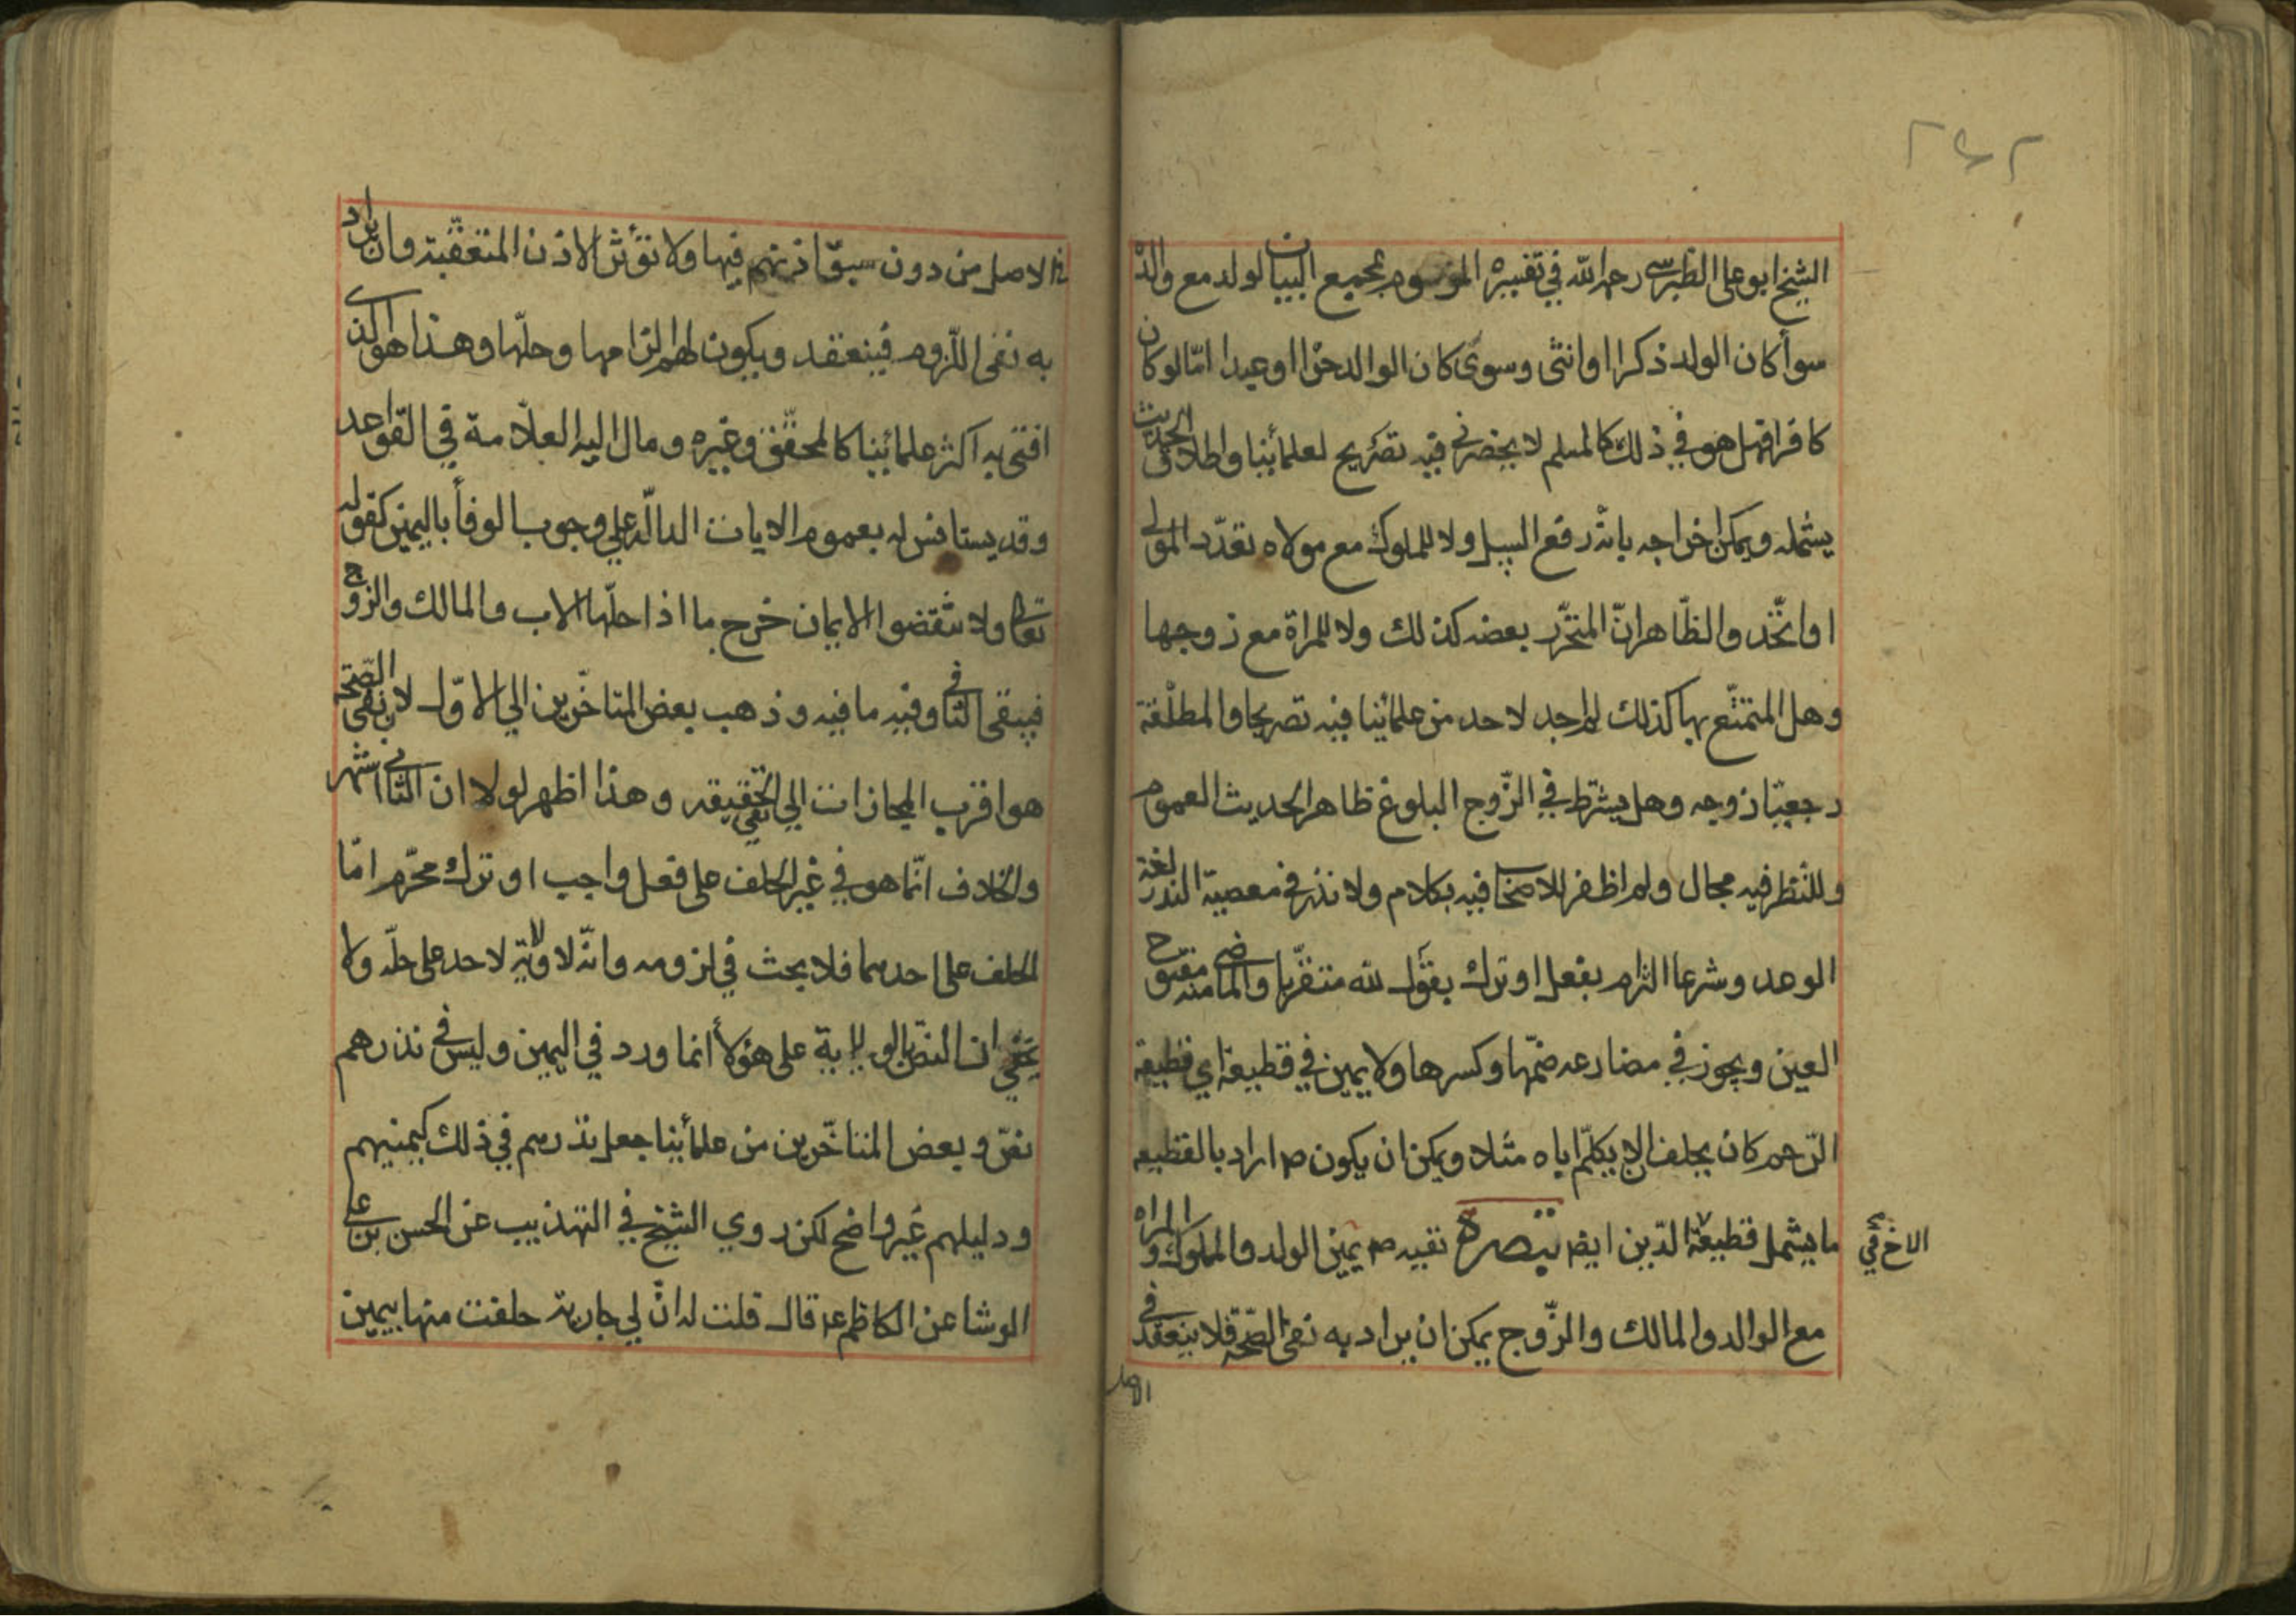 الشيخ ابو على الطبرسي رحمه الله في تفسيره الموسوم بمجمع البيان لولد مع والده
سوأ كان الولد ذكرا او انثى وسوى كان الوالد حرا او عبدا امّا لو كان
كافرا فهل هو في ذلك كالمسلم لا يحضرني فيه تصريح لعلمائنا واطلاق الحديث
يشمله ويمكن اخراجه بانه رفع السبيل ولا للمملوك مع مولاه تعدّد المولى
او اتّحد والظّاهر انّ المتحرّر بعضه كذلك ولا للمراة مع زوجها
وهل المتمتّع بها كذلك لم اجد لاحد من علمائنا فيه تصريحا والمطلّقة
رجعيّا زوجه وهل يشترط في الزّوج البلوغ ظاهر الحديث العموم
وللنّظر فيه مجال ولم اظفر للاصحاب فيه بكلام ولا نذر في معصية النذر لغة
الوعد وشرعا التزام بفعل او ترك بقول لله متقرّبا والماضي منه مفتوح
العين ويجوز في مضارعه ضمّها وكسرها ولا يمين في قطيعة اي قطيعة
الرّحم كان يحلف الا يكلّم اباه مثلا ويمكن ان يكون ص اراد بالقطيعه
ما يشمل قطيعة الدّين ايض تبصرة نفيه ص يمين الولد والمملوك والمراه
الاخ في
مع الوالد والمالك والزّوج يمكن ان يراد به نفى الصّحّه فلا ينعقد في
الاصل
الاصل من دون سبق اذنهم فيها ولا تؤثّر الاذن المتعقّبة وان يراد
به نفى اللّزوم فينعقد ويكون لهم الزامها وحلّها وهذا هو الذى
افتى به اكثر علمائنا كالمحقّق وغيره ومال اليه العلّامة في القواعد
وقد يستانس له بعموم الايات الدالّه على وجوب الوفأ باليمين كقوله
تعالى ولا تنقضوا الايمان خرج ما اذا حلّها الاب والمالك والزّوج
فيبقى الثانى وفيه ما فيه وذهب بعض المتاخّرين الي الاوّل لان نفى الصّحّه
هو اقرب المجازات الي نفى الحقيقه وهذا اظهر لولا ان الثانى اشهر
والخلاف انّما هو في غير الحلف على فعل واجب او ترك محرّم امّا
الحلف على احدهما فلا بحث في لزومه وانّه لا ولاية لاحد على حلّه ولا
يخفي ان النصّ بالولاية على هؤلأ انما ورد في اليمين وليس في نذرهم
نصّ وبعض المتاخّرين من علمائنا جعل نذرهم في ذلك كيمينهم
ودليلهم غير واضح لكن روي الشيخ في التهذيب عن الحسن بن على
الوشا عن الكاظم ع قال قلت له انّ لي جارية حلفت منها بيمين